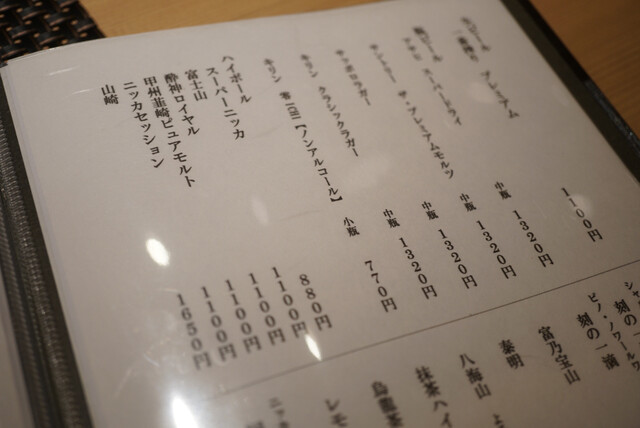 生ビール
一番搾り プレミアム 1100円
瓶ビール
アサヒ スーパードライ 中瓶 1320円
サントリー ザ・プレミアムモルツ 中瓶 1320円
サッポロラガー 中瓶 1320円
キリン クラシックラガー 中瓶 1320円
キリン 零ICHI【ノンアルコール】 小瓶 770円
ハイボール
スーパーニッカ 880円
富士山 1100円
酔神ロイヤル 1100円
甲州韮崎ピュアモルト 1100円
ニッカセッション 1100円
山崎 1650円
刻の一滴
ピノ・ノワール
刻の一滴
富乃宝山
泰明
八海山
抹茶ハイ
烏龍茶
レモ
ニッ